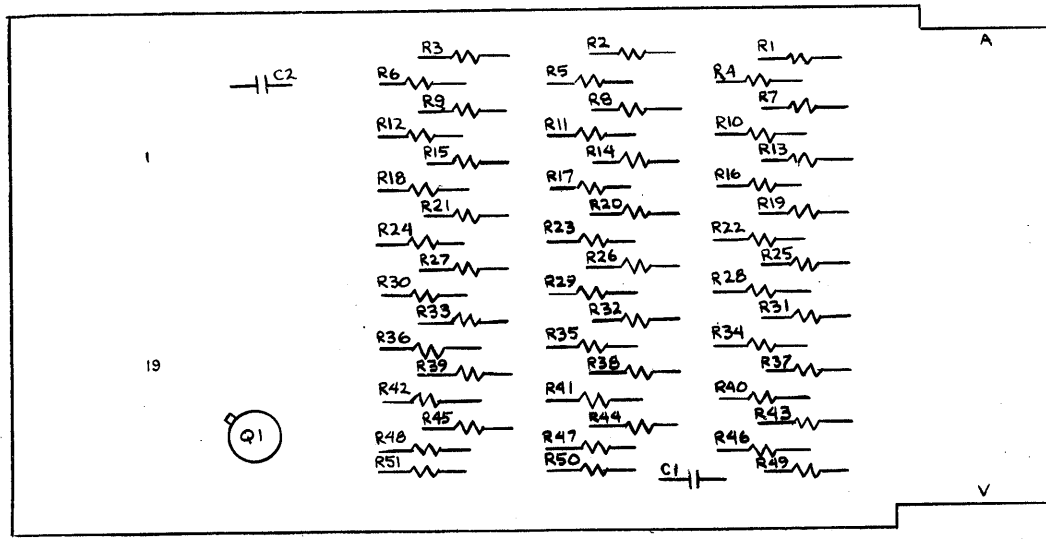 A
R3 R2 R1
C2 R6 R5 R4
R9 R8 R7
R12 R11 R10
1 R15 R14 R13
R18 R17 R16
R21 R20 R19
R24 R23 R22
R27 R26 R25
R30 R29 R28
R33 R32 R31
R36 R35 R34
19 R39 R38 R37
R42 R41 R40
R45 R44 R43
Q1 R48 R47 R46
R51 R50 C1 R49
V